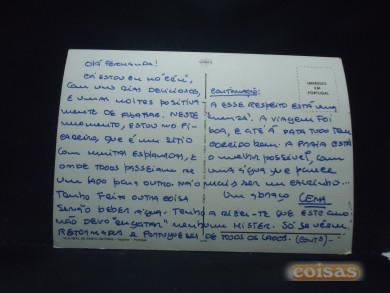 Olá Fernanda!
Cá estou eu no "Céu",
com uns dias deliciosos,
e umas noites positiva-
mente de
momento, estou no Pi-
caideiro, que é um sítio
com muitas esplanadas, e
onde todos passeiam de
um lado para outro. Não
tenho feito outra coisa
senão beber água. Tenho
não devo "engatar" nenhum Mister. Só se vêem
reformados e portugueses de todos os lados. (cont) -
Continuação:
a esse respeito está uma
A viagem foi
boa, e até à data tudo tem
corrido bem. A praia está
o melhor possível, com
uma água que parece
mais ser um caldinho...
Um abraço Lena
a dizer-te que este ano
IMPRESSO
EM
PORTUGAL
coisas